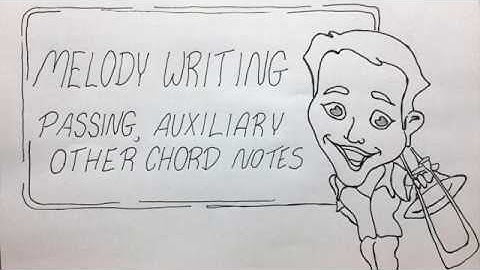 MELODY WRITING
PASSING, AUXILIARY
OTHER CHORD NOTES